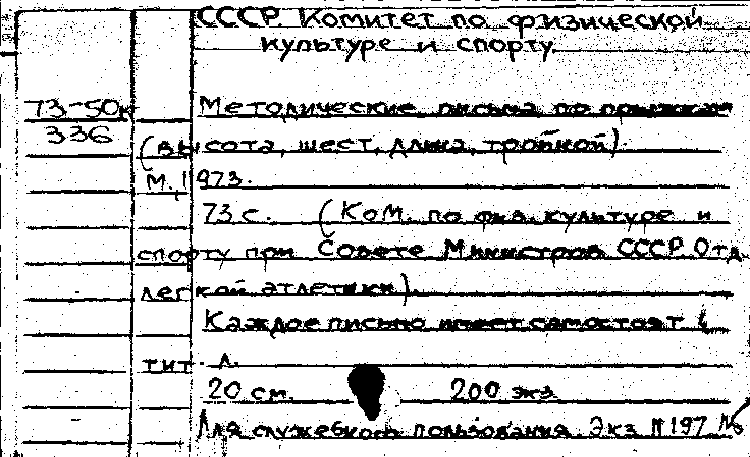 СССР Комитет по физической
культуре и спорту
73-50к Методические письма по прыжкам
336 (высота, шест, длина, тройной)
М., 1973.
73 с. (Ком. по физ. культуре и
спорту при Совете Министров СССР. Отд.
легкой атлетики).
Каждое письмо имеет самостоят
тит. л.
20 см. 200 экз
Для служебного пользования. Экз №197